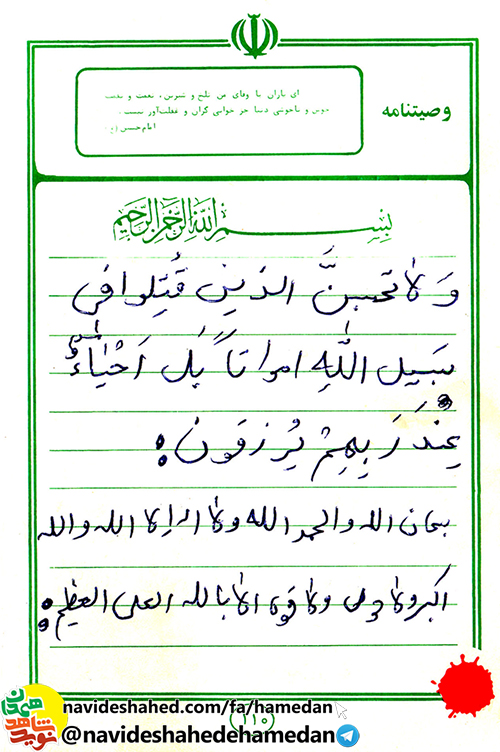 وصیتنامه
ای یاران با وفای من تلخ و شیرین، نعمت و نقمت
خوش و ناخوشی دنیا جز خوابی گران و غفلت‌آور نیست.
امام حسین (ع)
بسم الله الرحمن الرحیم
وَلا تحسبنَّ الذین قُتِلوا فی
سبیل اللّٰهِ امواتاً بَل اَحْیاءٌ
عِنْدَ رَبِهِمْ یُرزقون:
سبحان الله والحمد الله ولا اله الا الله والله
اکبر ولا حول ولا قوه الا بالله العلی العظیم:
نوید شاهد همدان
navideshahed.com/fa/hamedan
(۱۱۰)
@navideshahedehamedan